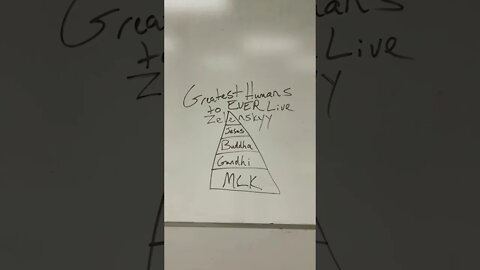 Greatest Humans
to EVER Live
Zelenskyy
Jesus
Buddha
Gandhi
MLK